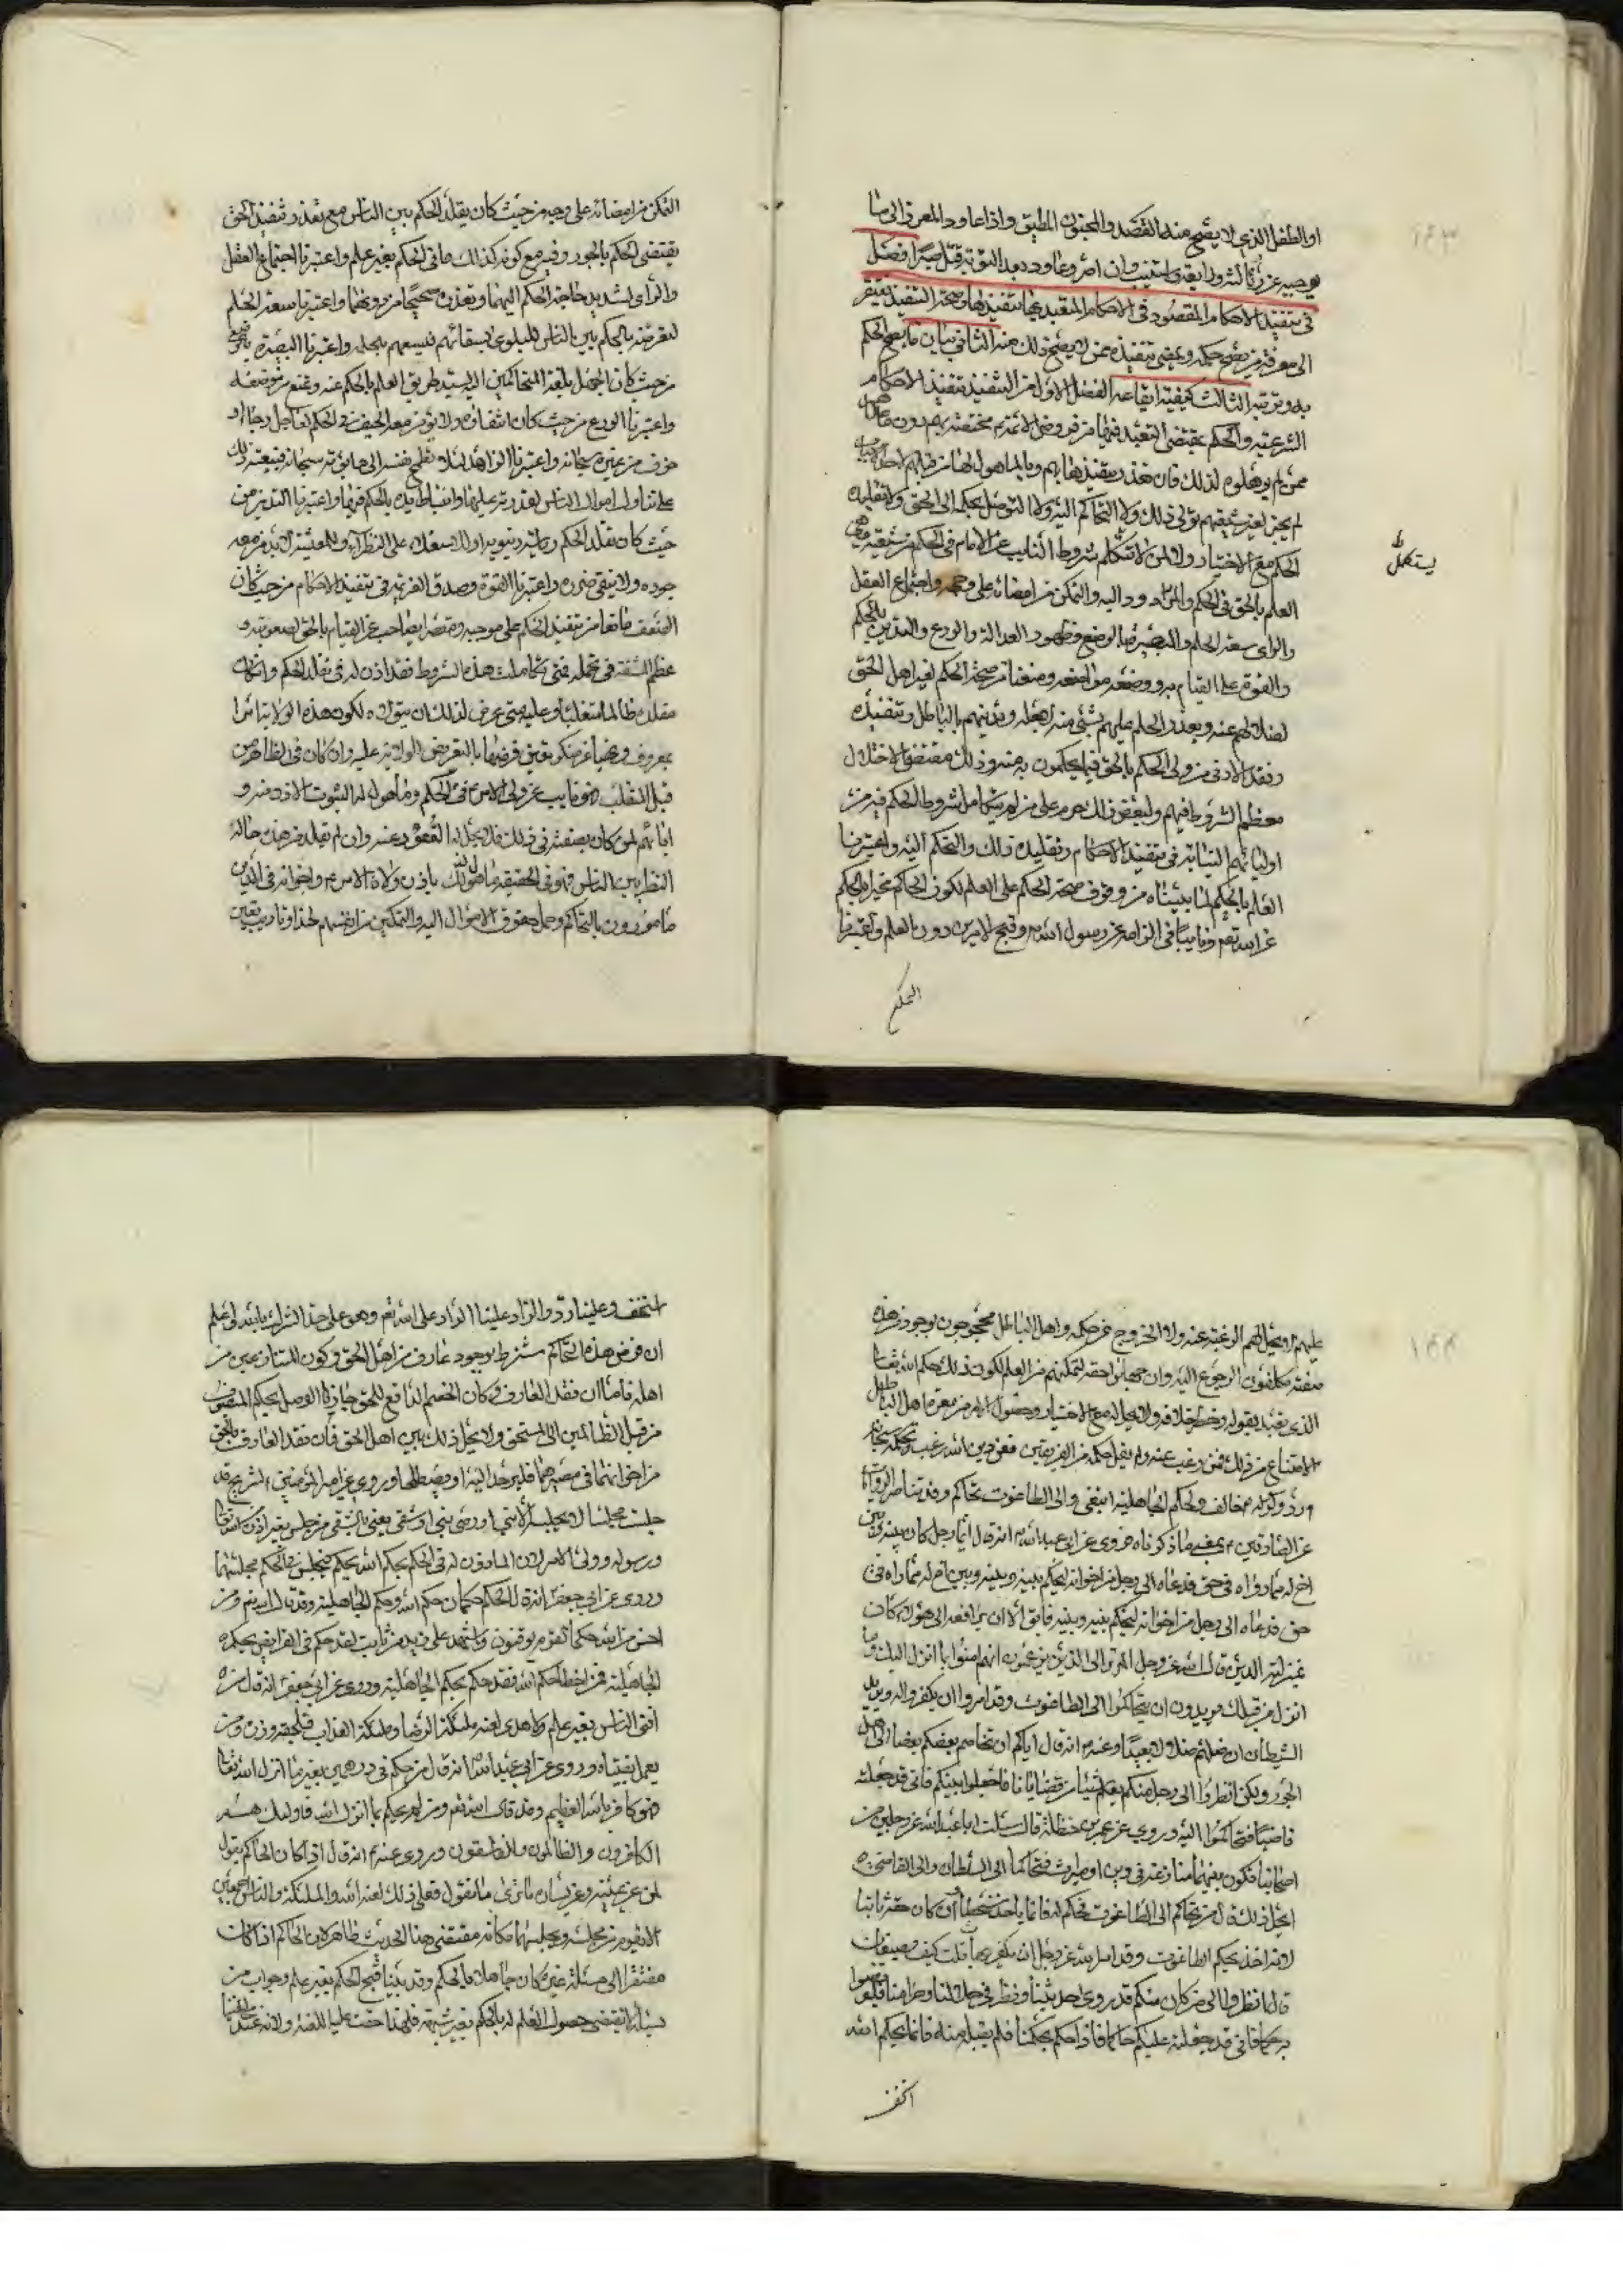 او الطفل الذي لا يصح منه القصد والمجنون المطبق واذا عاود المعرض الى ما
يوجبه عزر ثالثة ورابعة استتيب وان اصر وعاود بعد التوبة قتل صبرا فصل
في تنفيذ الاحكام المقصود في الاحكام المتعبد بها تنفيذها وصحة التنفيذ يفتقر
الى معرفة من يصح حكمه ويمضي تنفيذه ممن لا يصح ذلك منه الثاني بيان ما يصح الحكم
به وترتيبه الثالث كيفية ايقاعه الفصل الاول من التنفيذ تنفيذ الاحكام
الشرعية والحكم بمقتضى التعبد فيها من فروض الائمة مختصة بهم دون من عداهم
ممن لم يؤهلوه لذلك فان تعذر تنفيذها بهم وبالمأهول لها من قبلهم لاحد الاسباب
لم يجز لغير شيعتهم تولي ذلك ولا التحاكم اليه ولا التوصل بحكمه الى الحق ولا تقليده
الحكم مع الاختيار ولا لمن لا تتكامل شروط النايب عن الامام في الحكم من شيعته وهي
يستكمل
العلم بالحق في الحكم والمردود اليه والتمكن من امضائه على وجهه واجتماع العقل
والراي وسعة الحلم والبصيرة بالوضع وظهور العدالة والورع والتدين بالحكم
والقوة على القيام به ووضعه مواضعه ومنعنا من صحة الحكم لغير اهل الحق
لضلالهم عنه وتعذر العلم عليهم بشيء منه لجهله وتدينهم بالباطل وتنفيذه
وفقد الاذن من ولي الحكم بالحق فيما يحكمون به منه وذلك مقتضى لاختلال
معظم الشروط فيهم ولبعض ذلك حرم على من لم يتكامل شروط الحكم فيه من
اوليائهم النيابة في تنفيذ الاحكام وتقليده ذلك والتحاكم اليه واعتبرنا
العلم بالحكم لما بيناه من وقوف صحة الحكم على العلم لكون الحاكم مخبرا بالحكم
عن الله تعم ونايبا في الزامه عن رسول الله ص وقبح الامرين دون العلم واعتبرنا
التمكن
التمكن من امضائه على وجهه من حيث كان تقلد الحكم بين الناس مع تعذر تنفيذ الحق
يقتضي الحكم بالجور وقبحه مع كونه كذلك ما في الحكم بغير علم واعتبرنا اجتماع العقل
والراي لشديد حاجة الحكم اليهما وتعذره صحيحا من دونهما واعتبرنا سعة الحلم
لتعرضه بالحكم بين الناس للبلوى بسفهائهم فيسعهم بحلمه واعتبرنا البصيرة بالوضع
من حيث كان الجهل بلغة المتحاكمين اليه يسد طريق العلم بالحكم عنه ويمنع من وضعه
واعتبرنا الورع من حيث كان انتفاؤه لا يؤمن معه الحيف في الحكم لعاجل رجاء او
خوف من غيره سبحانه واعتبرنا الزهد لئلا تطمح نفسه الى ما لم يؤته سبحانه فيبعثه ذلك
على تناول اموال الناس لقدرته عليها وانبساط يده بالحكم فيها واعتبرنا التدين من
حيث كان تقلد الحكم رياسة دنيوية او لاستعلاء على النظراء وللمعيشة لا يؤمن معه
جوره ولا ينتفي ضرره واعتبرنا القوة وصدق العزيمة في تنفيذ الاحكام من حيث كان
الضعف مانعا من تنفيذ الحكم على موجبه ومقصرا بصاحبه عن القيام بالحق لصعوبته و
عظم المشقة في تحمله فمتى تكاملت هذه الشروط فقد اذن له في تقلد الحكم وان كان
مقلده ظالما متغلبا وعليه متى عرض لذلك ان يتولاه لكون هذه الولاية امرا
بمعروف ونهيا عن منكر تعين فرضها بالتعريض للولاية عليه وان كان في الظاهر من
قبل المتغلب فهو نايب عن ولي الامر ع في الحكم ومأهول له لثبوت الاذن منه و
ابائهم لمن كان بصفته في ذلك فلا يحل له القعود عنه وان لم يقلد من هذه حاله
النظر بين الناس فهو في الحقيقة مأهول لذلك باذن ولاة الامر ع واخوانه في الدين
مأمورون بالتحاكم وحمل حقوق الاموال اليه والتمكين من انفسهم لحد او تأديب تعين
عليهم لا يحل لهم الرغبة عنه ولا الخروج عن حكمه واهل الباطل محجوجون بوجود من هذه
صفته مكلفون الرجوع اليه وان جهلوا حقه لتمكنهم من العلم لكون ذلك حكم الله تعالى
الذي تعبد بقوله وحظر خلافه ولا يحل له مع الاختيار وحصول الامن من معرة اهل الباطل
الامتناع من ذلك فمن رغب عنه ولم يقبل حكمه من الفريقين فعن دين الله رغب ولحكمه سبحانه
رد ولرسوله ص خالف ولحكم الجاهلية ابتغى والى الطاغوت تحاكم وقد تناصر الروايات
عن الصادقين ع بمعنى ما ذكرناه فروي عن ابي عبد الله ع انه قال ايما رجل كان بينه وبين
اخ له مماراة في حق فدعاه الى رجل من اخوانه ليحكم بينه وبينه
حق فدعاه الى رجل من اخوانه ليحكم بينه وبينه فابى الا ان يرافعه الى هؤلاء كان
بمنزلة الذين قال الله عز وجل الم تر الى الذين يزعمون انهم امنوا بما انزل اليك وما
انزل من قبلك يريدون ان يتحاكموا الى الطاغوت وقد امروا ان يكفروا به ويريد
الشيطان ان يضلهم ضلالا بعيدا وعنه ع انه قال اياكم ان يخاصم بعضكم بعضا الى اهل
الجور ولكن انظروا الى رجل منكم يعلم شيئا من قضايانا فاجعلوا بينكم فاني قد جعلته
قاضيا فتحاكموا اليه وروي عن عمر بن حنظلة قال سئلت ابا عبد الله عن رجلين من
اصحابنا يكون بينهما منازعة في دين او ميراث فتحاكما الى السلطان والى القاضي
ايحل ذلك قال من تحاكم الى الطاغوت فحكم له فانما ياخذ سحتا وان كان حقه ثابتا
لانه اخذ بحكم الطاغوت وقد امر الله عز وجل ان يكفر بها قلت كيف يصنعان
قال انظروا الى من كان منكم قد روى حديثنا ونظر في حلالنا وحرامنا فليرضوا
به حكما فاني قد جعلته عليكم حاكما فاذا حكم بحكمنا فلم يقبله منه فانما بحكم الله
استخف
استخف وعلينا رد والراد علينا الراد على الله تعم وهو على حد الشرك بالله
ان فرض هذه التحاكم مشترط بوجود عارف من اهل الحق وكون المتنازعين من
اهله فاما ان فقد العارف وكان الخصم الدافع للحق جاز التوصل بحكم المنصوب
من قبل الظالمين الى المستحق ولا يحل ذلك بين اهل الحق فان فقد العارف بالحق
من اخوانهما في مصرهما فليرحلا اليه او يصطلحا وروي عن امير المؤمنين ع لشريح قد
جلست مجلسا لا يجلسه الا نبي او وصي نبي او شقي يعني بالشقي من جلس بغير اذن الله تعالى
ورسوله وولي الامر لان الماذون له في الحكم بحكم الله يحكم فمجلسه في الحكم مجلسهما
وروي عن ابي جعفر انه قال الحكم حكمان حكم الله وحكم الجاهلية وقد قال الله تعم ومن
احسن من الله حكما لقوم يوقنون واشهد على زيد بن ثابت لقد حكم في الفرايض بحكم
الجاهلية فمن اخطا حكم الله فقد حكم بحكم الجاهلية وروي عن ابي جعفر انه قال من
افتى الناس بغير علم ولا هدى لعنه ملئكة الرضا وملئكة العذاب ولحقه وزر من
يعمل بفتياه وروي عن ابي عبد الله ع انه قال من حكم في درهمين بغير ما انزل الله تعالى
فهو كافر بالله العظيم وقد قال الله تعم ومن لم يحكم بما انزل الله فاولئك هم
الكافرون والظالمون والفاسقون وروي عنه ع انه قال اذا كان الحاكم يقول
لمن عن يمينه وعن يساره ما ترى ما تقول فعلى ذلك لعنة الله والملئكة والناس اجمعين
الا يقوم من مجلسه ويجلسهما مكانه مقتضى هذا الحديث ظاهر لان الحاكم اذا كان
مفتقرا الى مسئلة غيره كان جاهلا بالحكم وقد بينا قبح الحكم بغير علم وجواب من
يسئله لا يقتضي حصول العلم له بالحكم بغير شبهة فلهذا حقت عليه اللعنة ولانه عند مخالفينا